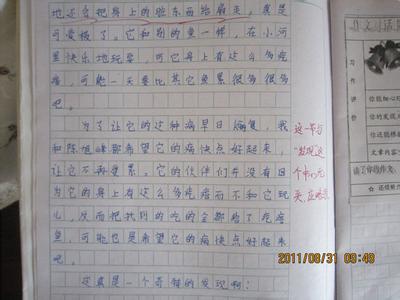 地还会把身上的脏东西给扇走，真是
可爱极了。它和别的鱼一样，在小河
里快乐地玩耍，可它身上有这么多疙
瘩，可能一天要比其它鱼累很多很多
吧。
为了让它的这种病早日病复，我
和陈旭峰都希望它的病快点好起来，
让它不再受累。它的伙伴们并没有因
为它的身上有这么多疙瘩而不和它玩
儿，反而把找到的吃的全都给了疙瘩
鱼，可能也是希望它的病快点好起来
吧。
这真是一个奇特的发现啊！
这一节与
“发现”这
个
写作评价
你能细心
你的发现
你还能
文章内容
2011/08/31 09:49